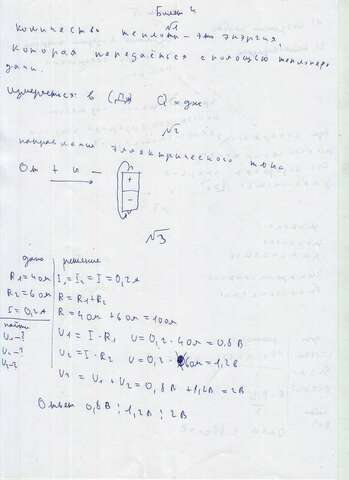 Билет 4
№1
Количество теплоты - это энергия,
которая передаётся с помощью теплопере
дачи.
Измеряется в (Дж) Q = дж
№2
направление электрического тока
От + к -
+
-
№3
дано решение
R1 = 4 ом I1 = I2 = I = 0,2 А
R2 = 6 ом R = R1 + R2
I = 0,2 А R = 4 ом + 6 ом = 10 ом
найти U1 = I · R1 U = 0,2 · 4 ом = 0,8 В
U1 - ? U2 = I · R2 U = 0,2 · 6 ом = 1,2 В
U2 - ?
U - ? U = U1 + U2 = 0,8 В + 1,2 В = 2 В
Ответ 0,8 В ; 1,2 В ; 2 В